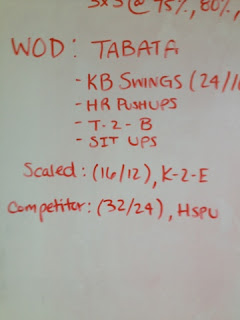 5x3 @ 75%, 80%,
WOD: TABATA
- KB SWINGS (24/1
- HR PUSHUPS
- T-2-B
- SIT UPS
Scaled: (16/12), K-2-E
Competitor: (32/24), HSPU